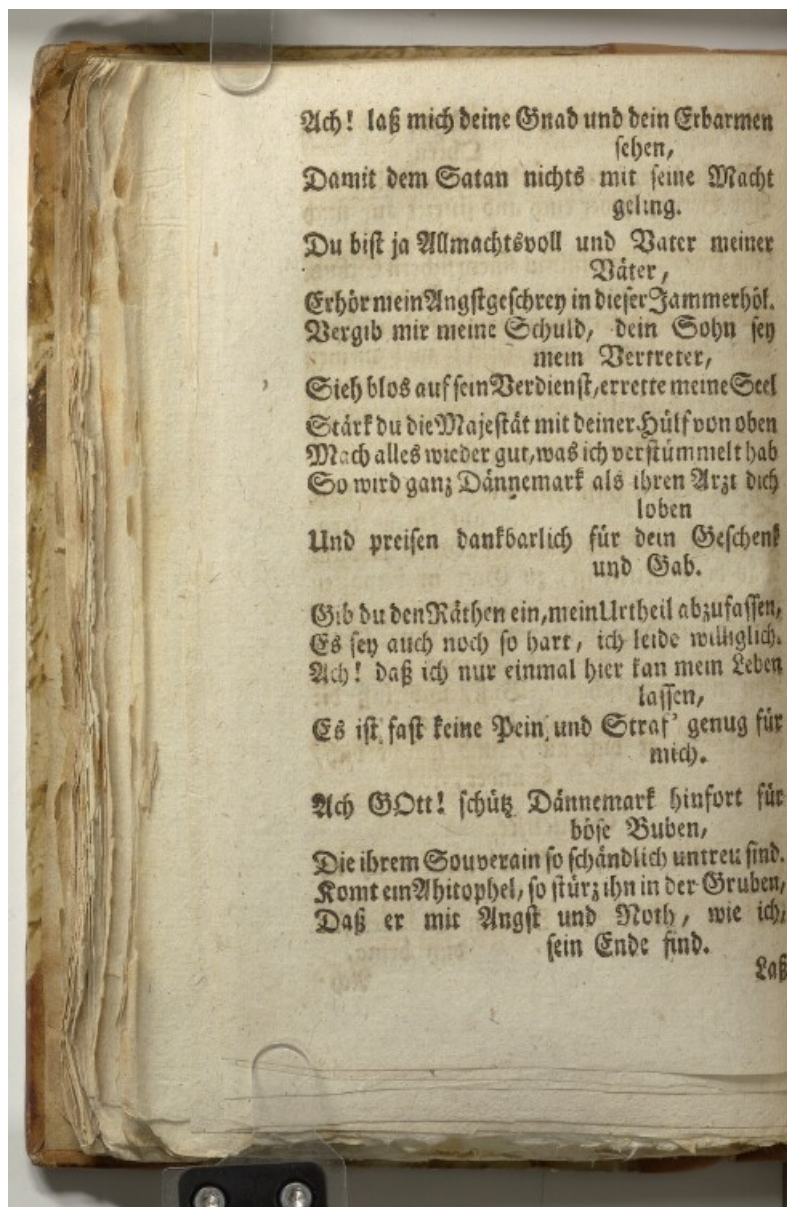 Ach! laß mich deine Gnad und dein Erbarmen
sehen,
Damit dem Satan nichts mit seine Macht
geling.
Du bist ja Allmachtsvoll und Vater meiner
Väter,
Erhör mein Angstgeschrey in dieser Jammerhöl.
Vergib mir meine Schuld, dein Sohn sey
mein Vertreter,
Sieh blos auf sein Verdienst, errette meine Seel
Stärk du die Majestät mit deiner Hülf von oben
Mach alles wieder gut, was ich verstümmelt hab
So wird ganz Dännemark als ihren Arzt dich
loben
Und preisen dankbarlich für dein Geschenk
und Gab.
Gib du den Räthen ein, mein Urtheil abzufassen,
Es sey auch noch so hart, ich leide williglich.
Ach! daß ich nur einmal hier kan mein Leben
lassen,
Es ist fast keine Pein und Straf' genug für
mich.
Ach GOtt! schütz Dännemark hinfort für
böse Buben,
Die ihrem Souverain so schändlich untreu sind.
Komt ein Ahitophel, so stürz ihn in der Gruben,
Daß er mit Angst und Noth, wie ich,
sein Ende find.
Laß